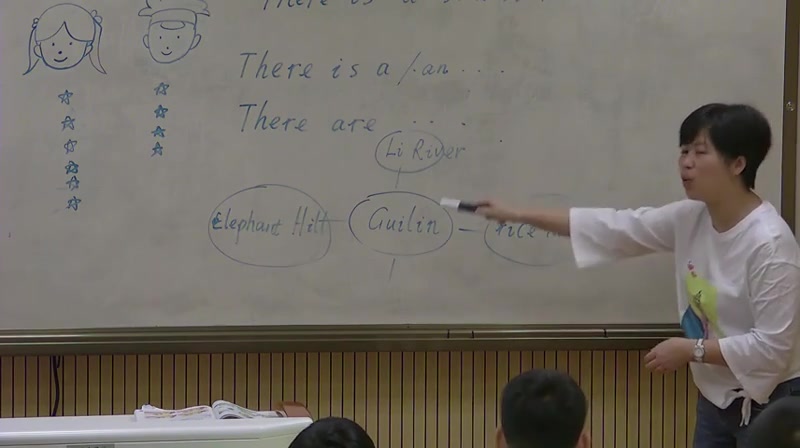 There is a
There is a /. an ...
There are ...
Li River
Elephant Hill
Guilin